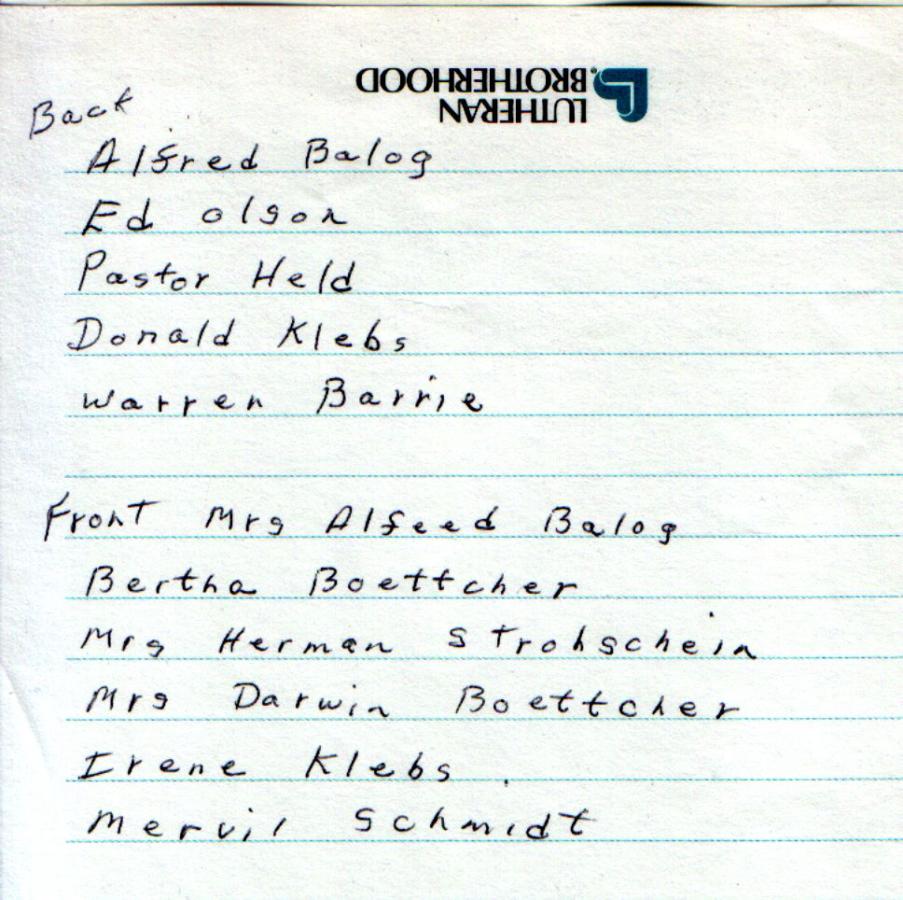 LUTHERAN
BROTHERHOOD®
Back
Alfred Balog
Ed olson
Pastor Held
Donald Klebs
Warren Barrie
Front Mrs Alfeed Balog
Bertha Boettcher
Mrs Herman Strohschein
Mrs Darwin Boettcher
Irene Klebs
Mervil Schmidt